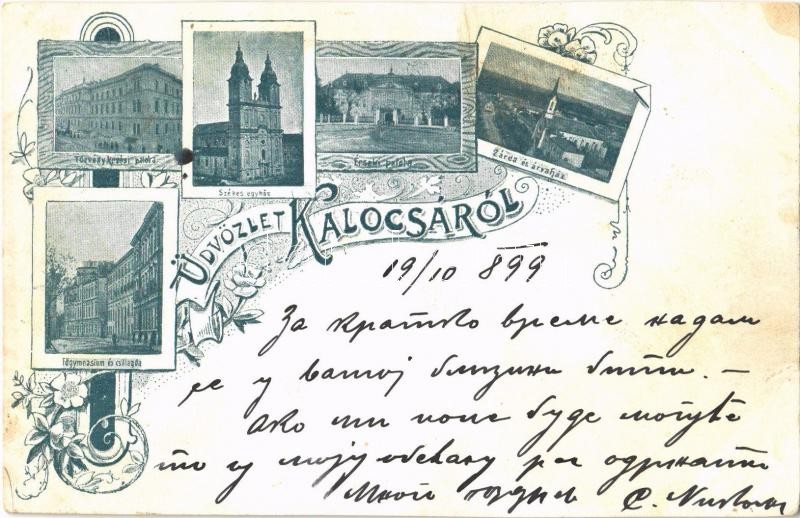 Törvénykezési palota
Székes egyház
Érseki palota
Zárda és árvaház
Főgymnasium és csillagda
ÜDVÖZLET KALOCSÁRÓL
19/10 899
За кратко време надам
се у вашој близини бити. –
Ако ми поле буде могуће
то ћу моју обећану реч одржати
Много